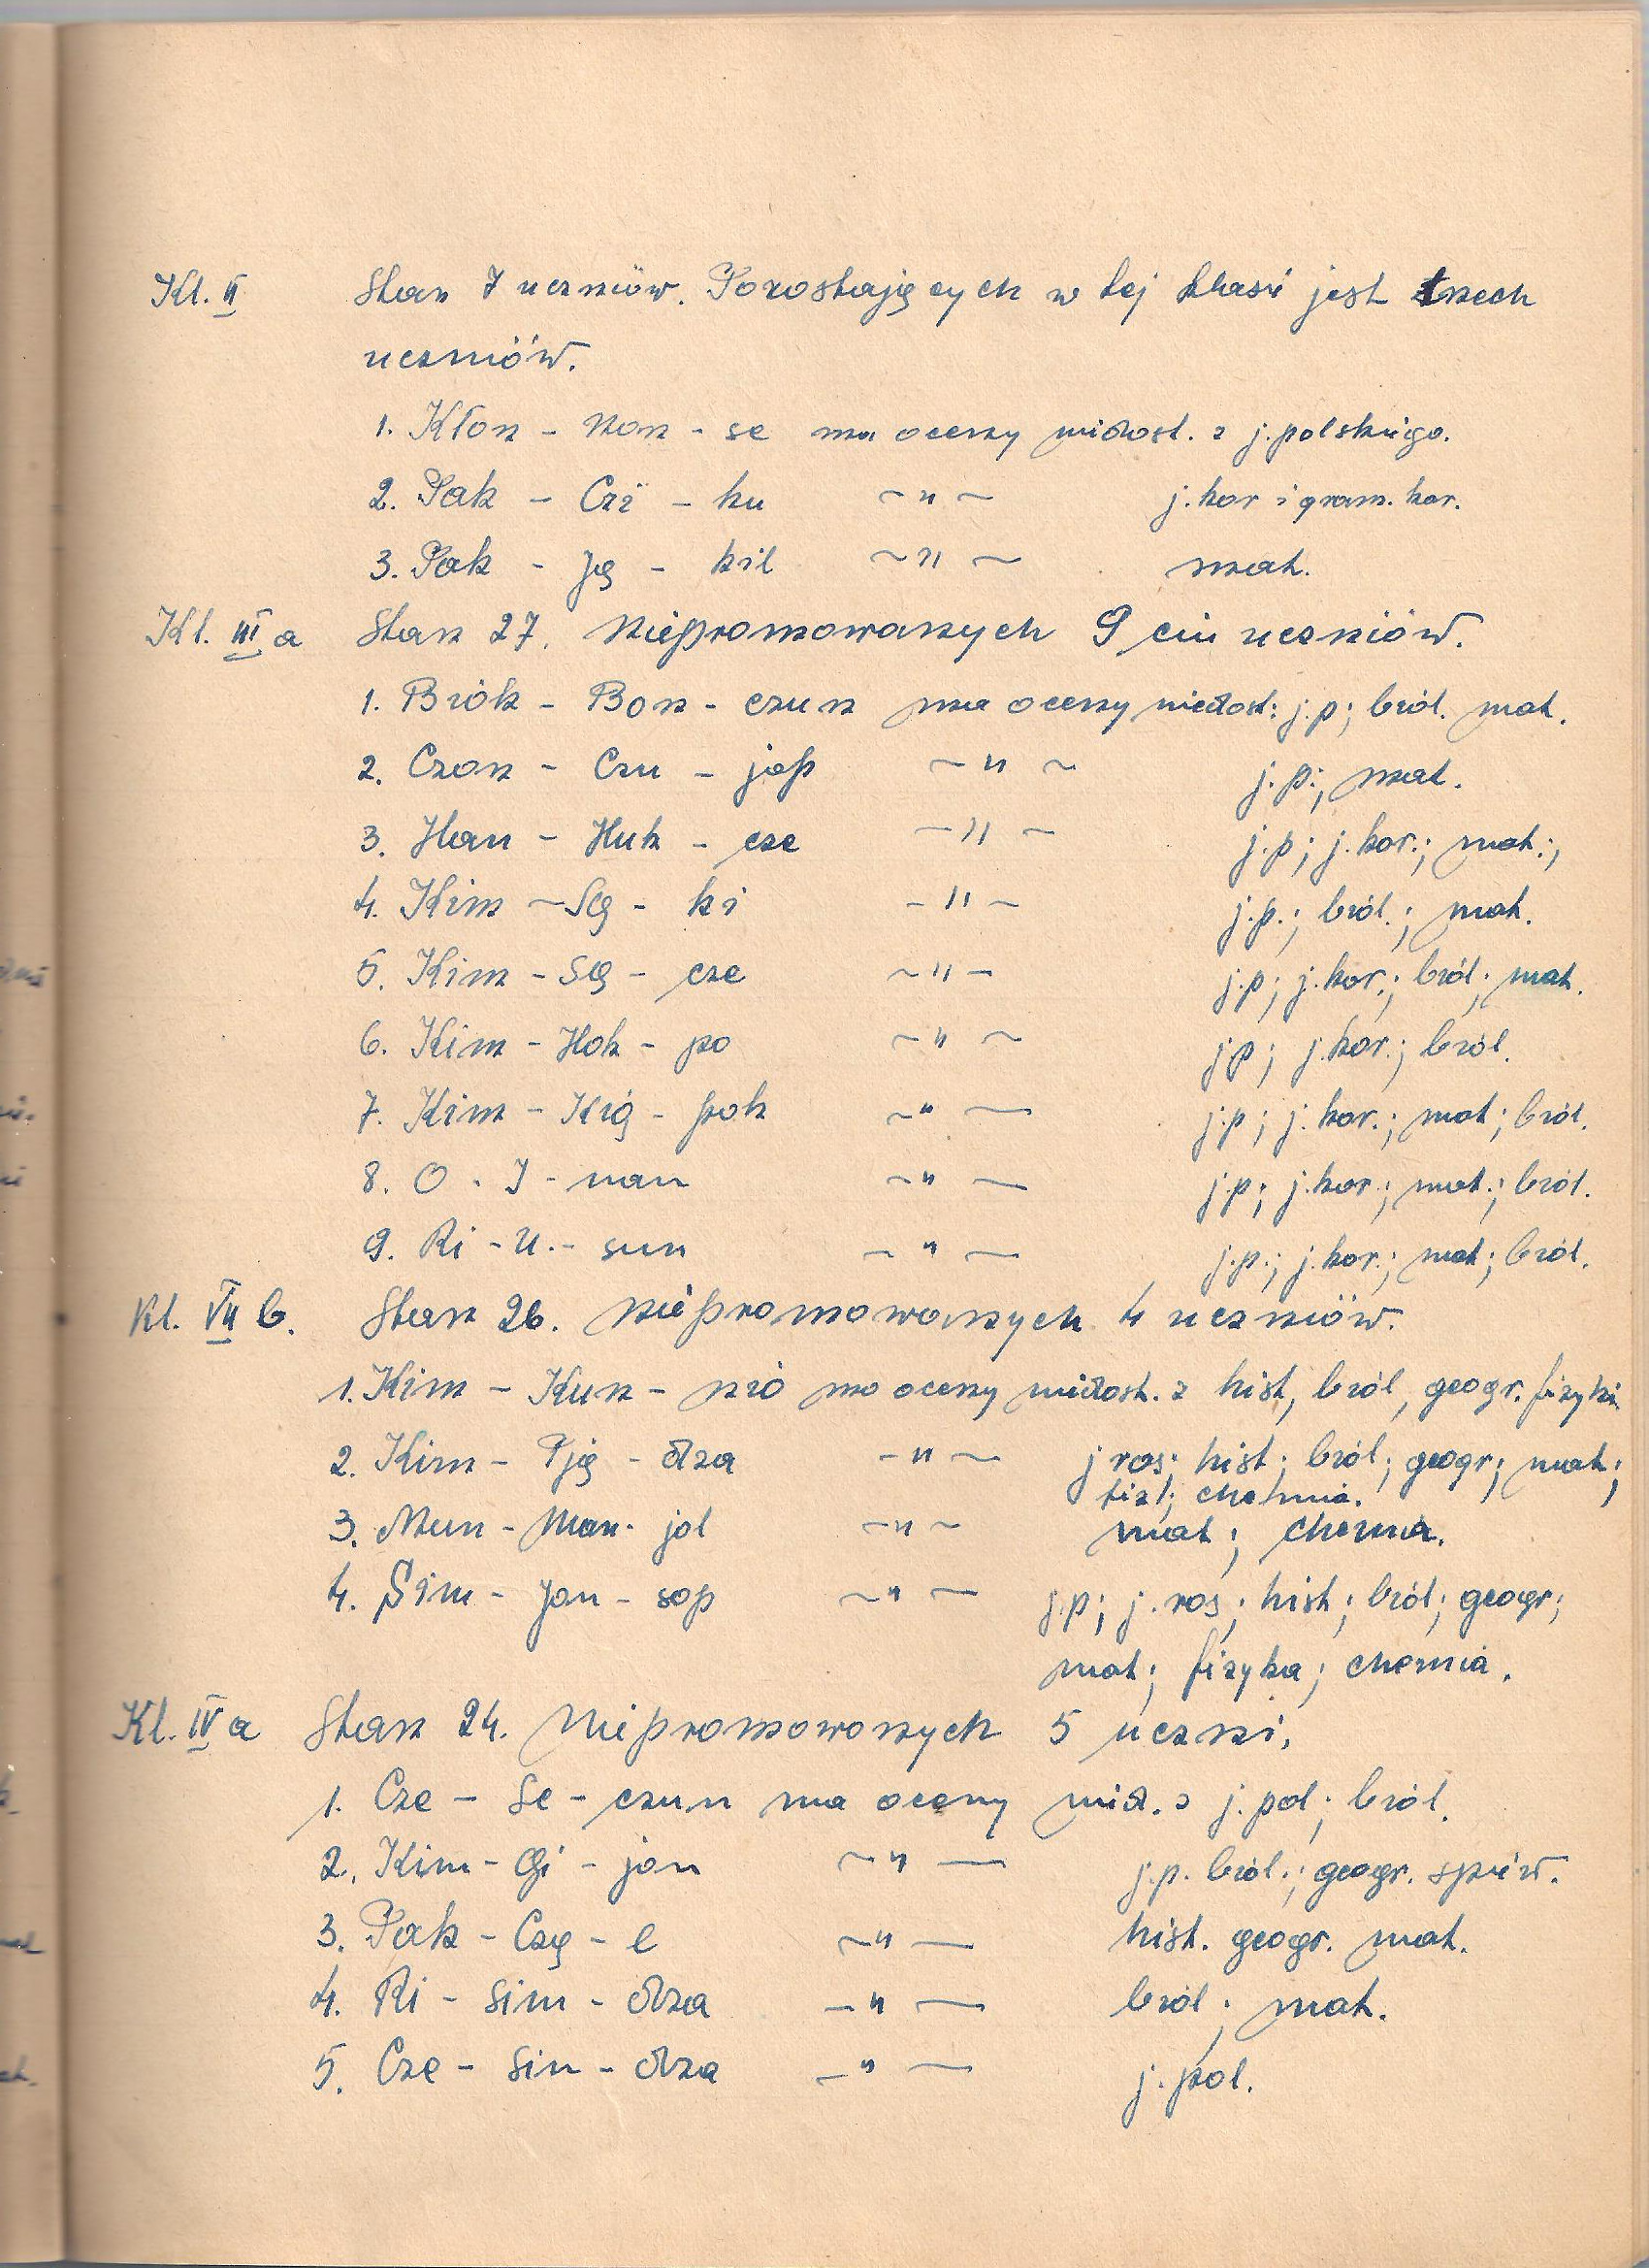 Kl. II Stan 7 uczniów. Pozostających w tej klasie jest trzech
uczniów.
1. Kłon - Non - se ma oceny niedost. z j. polskiego.
2. Pak - Czi - hu ~ " ~ j. kor i gram. kor.
3. Pak - Ję - kil ~ " ~ mat.
Kl. III a Stan 27. Niepromowanych 9 ciu uczniów.
1. Biók - Bon - czun ma oceny niedost: j.p; biol. mat.
2. Czon - Czu - jop ~ " ~ j.p.; mat.
3. Han - Huk - cze ~ " ~ j.p; j. kor.; mat.;
4. Kim - Sę - ki - " ~ j.p.; biol.; mat.
5. Kim - Sę - cze ~ " - j.p; j. kor.; biol; mat.
6. Kim - Hok - po ~ " ~ j p; j. kor.; biol.
7. Kim - Kię - pok ~ " - j.p; j. kor.; mat; biol.
8. O - I - nan ~ " - j.p; j. kor; mat.; biol.
9. Ri - U. - sun - " - j.p.; j. kor.; mat; biol.
Kl. VII b. Stan 26. Niepromowanych 4 uczniów.
1. Kim - Kun - nió ma oceny niedost. z hist, biol, geogr. fizyki
2. Kim - Pję - dza - " ~ j ros; hist; biol; geogr; mat;
fiz; chemia.
3. Mun - Man - jol ~ " ~ mat; chemia.
4. Sim - Jon - sop ~ " - j.p; j. ros; hist; biol; geogr;
mat; fizyka; chemia.
Kl. IV a Stan 24. Niepromowanych 5 uczni.
1. Cze - Se - czun ma oceny nied. z j. pol; biol.
2. Kim - Gi - jon ~ " - j.p. biol.; geogr. śpiew.
3. Pak - Czę - e ~ " - hist. geogr. mat.
4. Ri - Sim - dza - " - biol; mat.
5. Cze - Sin - dza - " - j. pol.